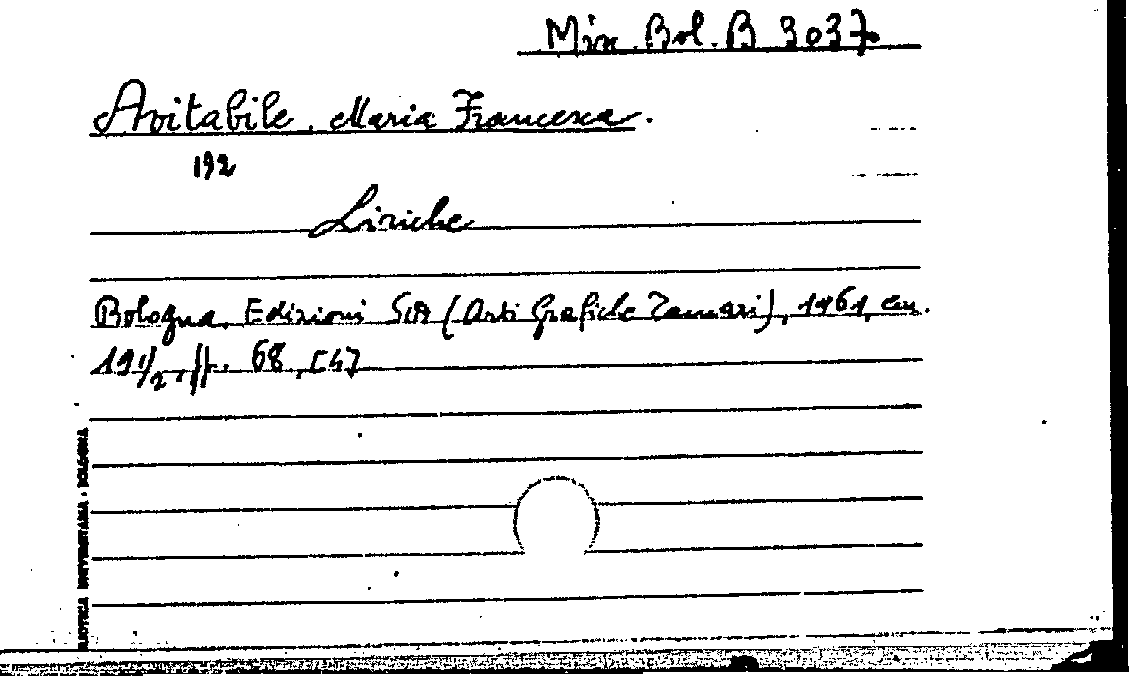 Min. Bol. B 3037.
Avitabile, Maria Francesca.
192
Liriche
Bologna, Edizioni SIA (Arti Grafiche Tamari), 1961, cm.
19½, pp. 68, [4]
BIBLIOTECA UNIVERSITARIA - BOLOGNA